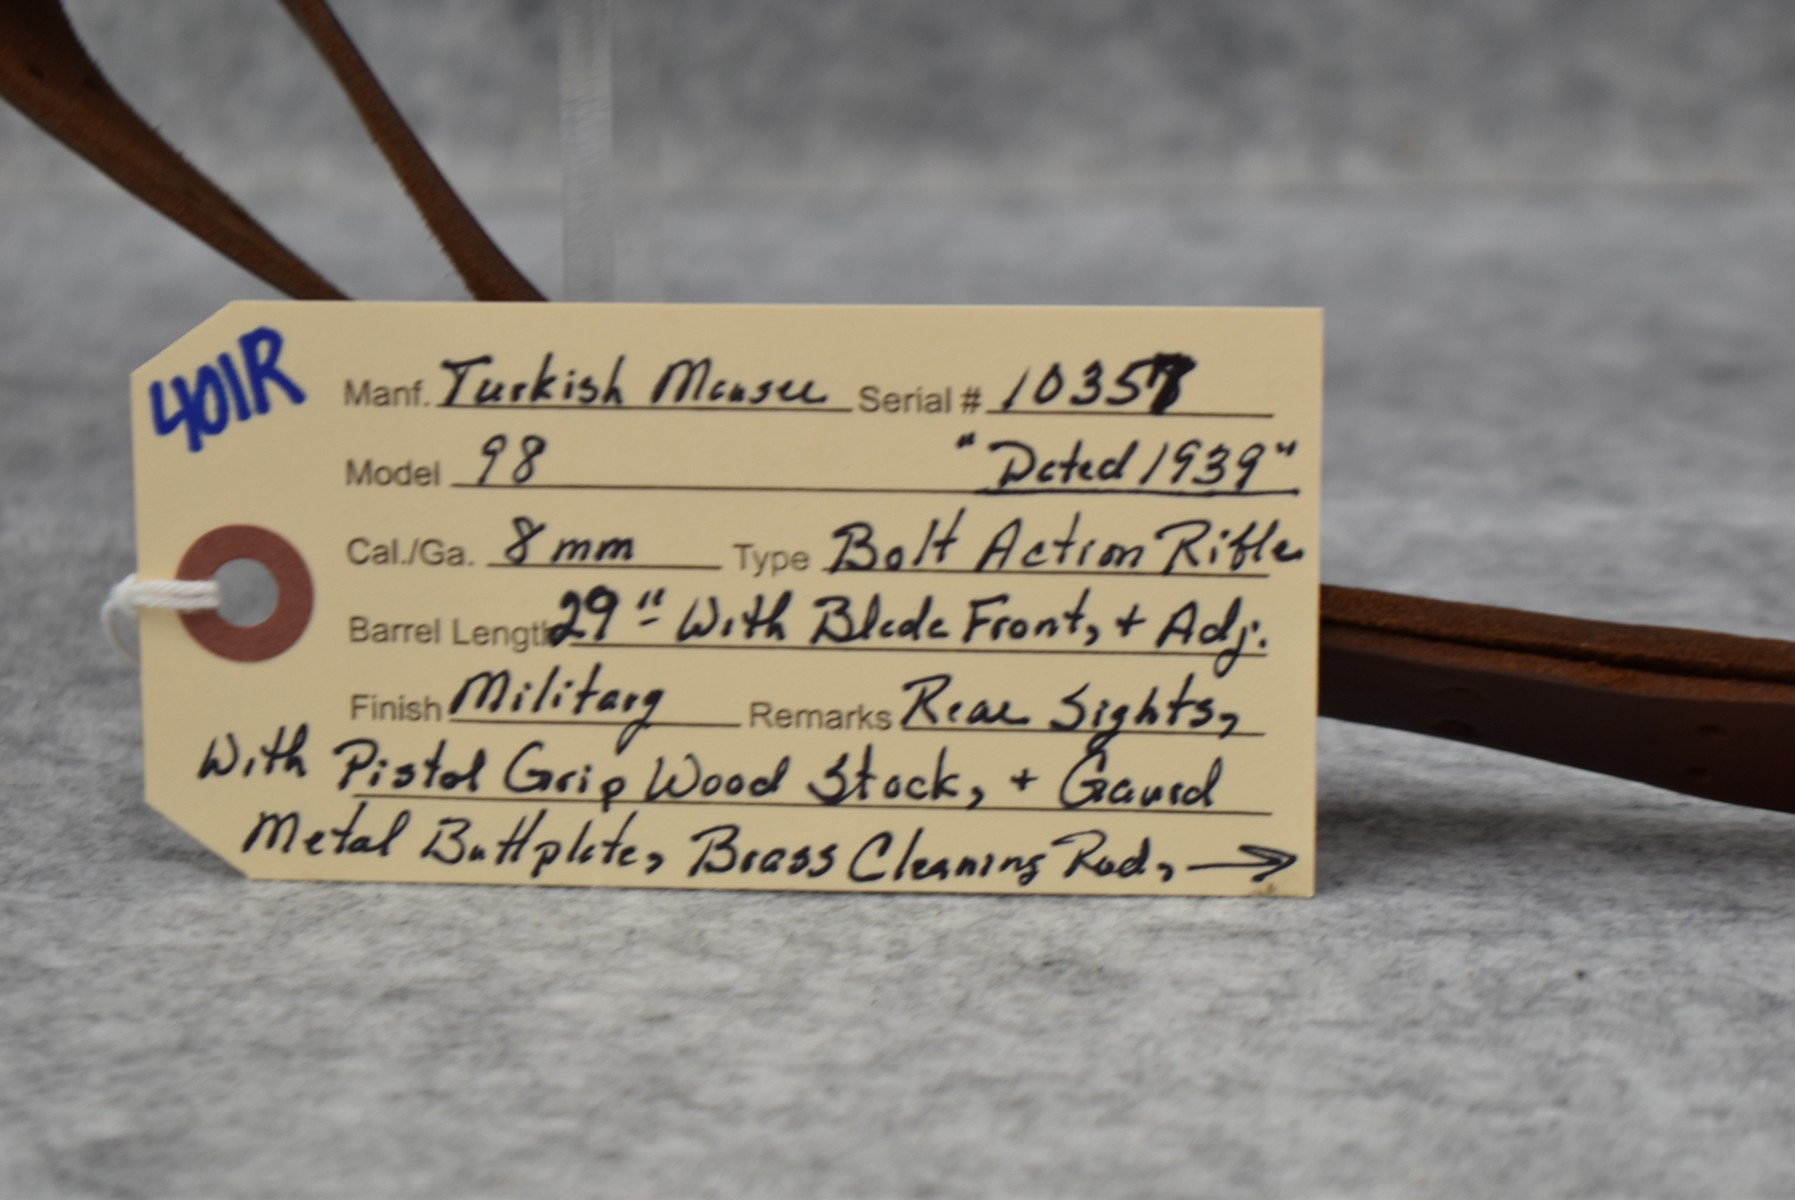 401R
Manf. Turkish Mauser Serial # 10357
Model 98 "Dated 1939"
Cal./Ga. 8mm Type Bolt Action Rifle
Barrel Length 29" With Blade Front, + Adj.
Finish Military Remarks Rear Sights,
With Pistol Grip Wood Stock, + Gaurd
Metal Buttplate, Brass Cleaning Rod, →